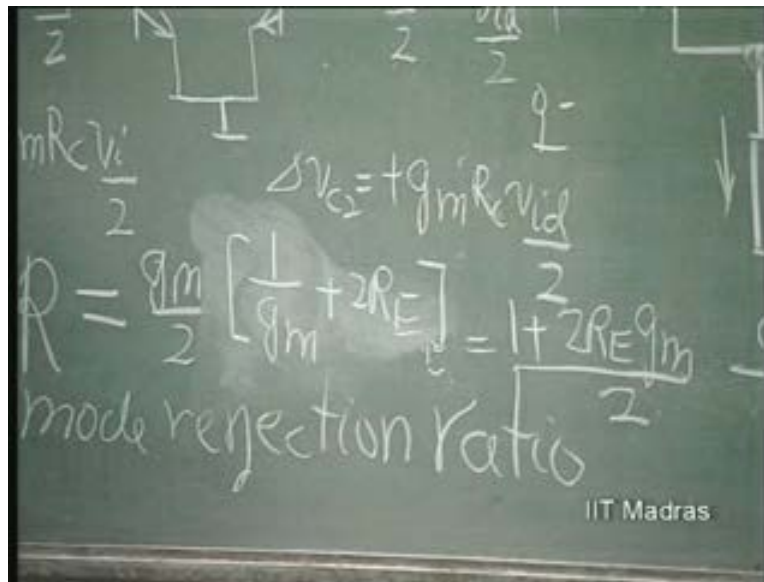 2 2 v_id/2
g -
mR_C v_i/2
Δv_C2 = +g_m R_C v_id/2
R = g_m/2 [1/g_m + 2R_E] = 1 + 2R_E g_m/2
mode rejection ratio
IIT Madras